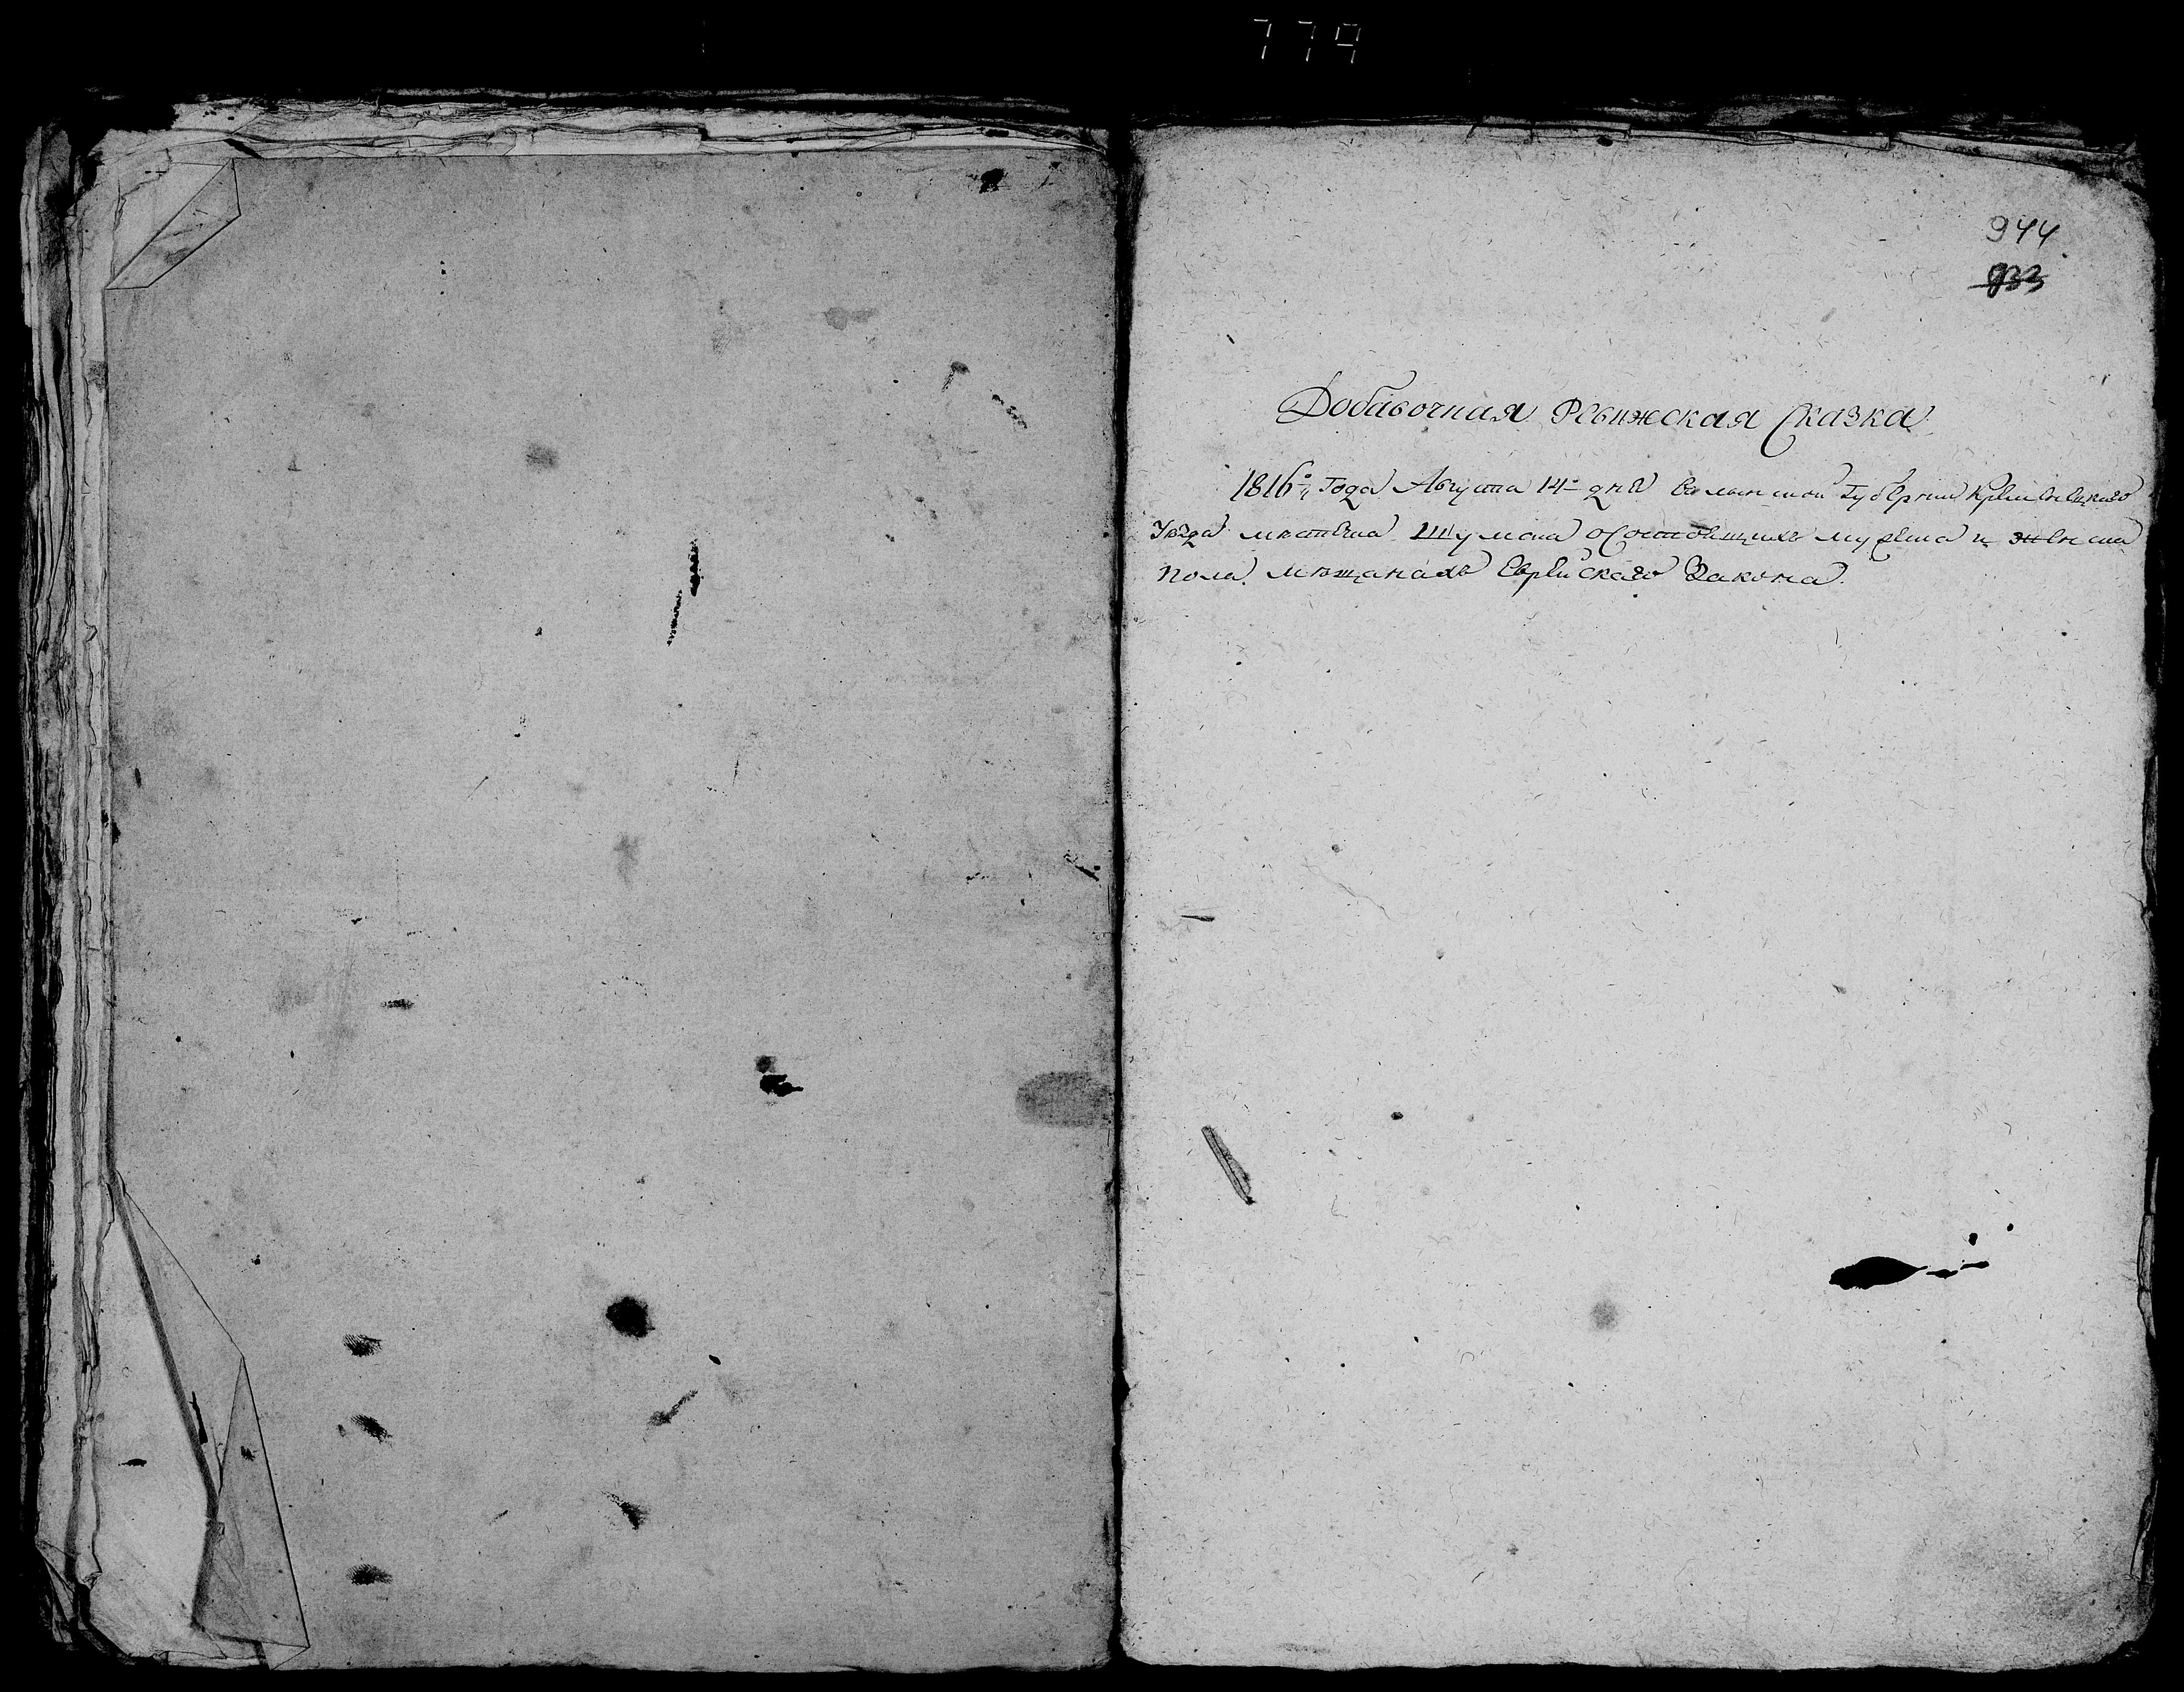 779
944
933
Добавочная Ревижская Сказка
1816го Года Августа 14го дня Волынской Губернии Кременецкаго
Уезда местечка Шумска о Состоящих мужеска и женска
пола мещанах Еврейскаго Закона.